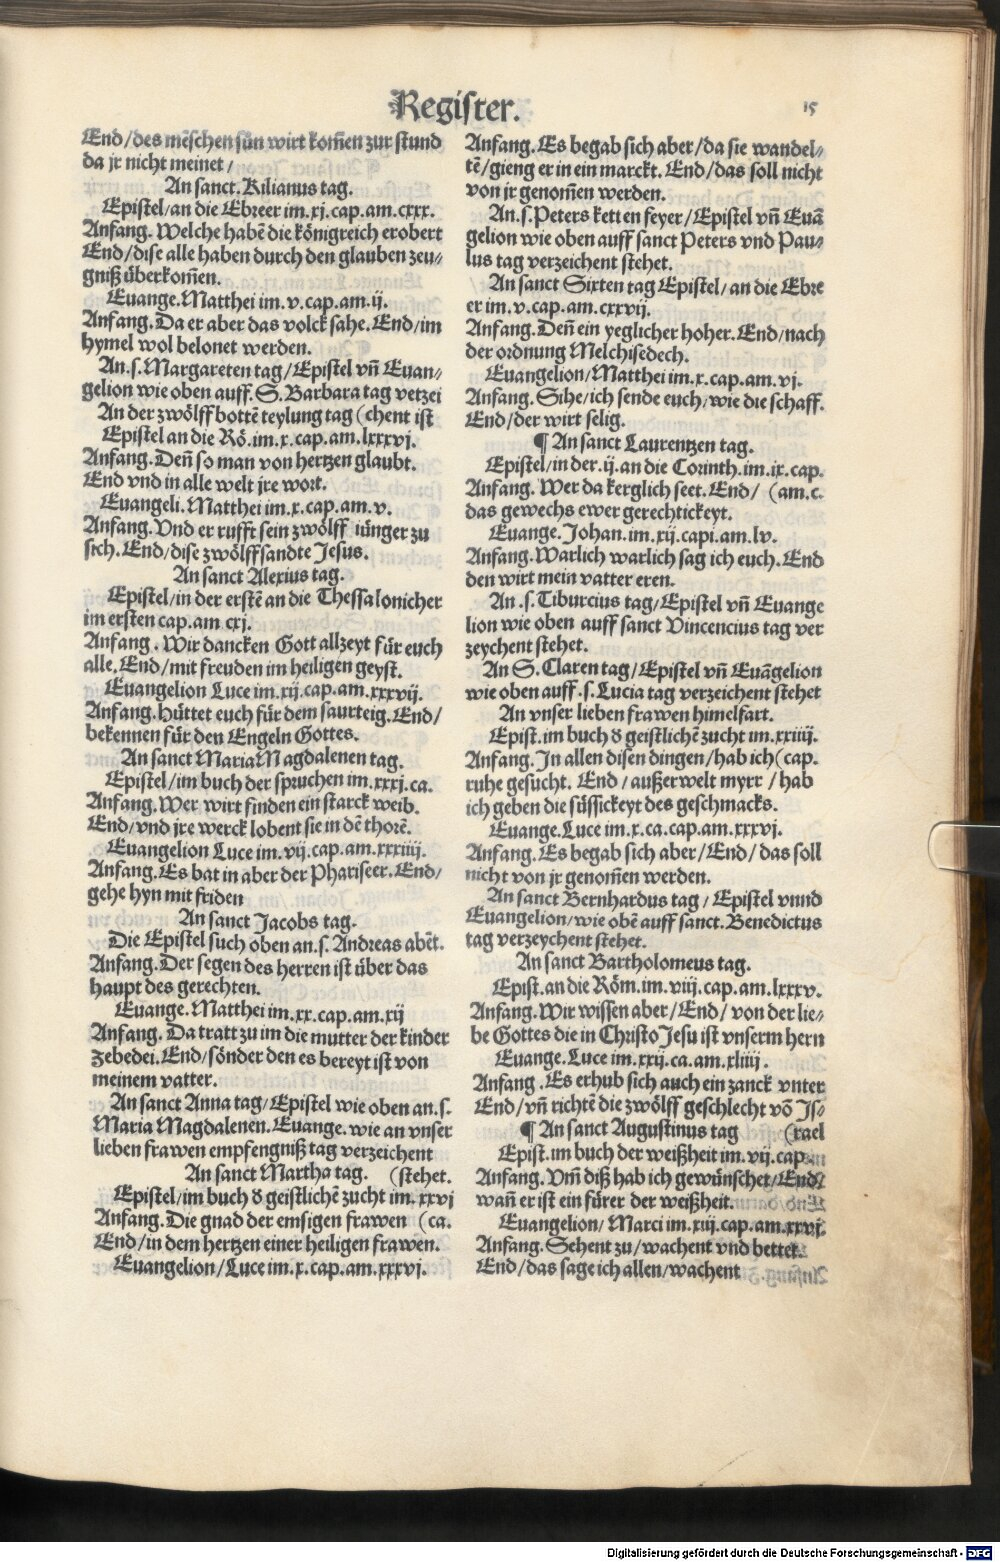 Register.
15
End/des mẽschen sün wirt kom̃en zur stund
da jr nicht meinet/
An sanct. Kilianus tag.
Epistel/an die Ebreer im.xj.cap.am.cxxx.
Anfang. Welche habẽ die königreich erobert
End/dise alle haben durch den glauben zeu⸗
gniß überkom̃en.
Euange.Matthei im.v.cap.am.ij.
Anfang.Da er aber das volck sahe.End/im
hymel wol belonet werden.
An.s.Margareten tag/Epistel vñ Euan⸗
gelion wie oben auff.S.Barbara tag vetzei
An der zwölff bottẽ teylung tag (chent ist
Epistel an die Rö.im.x.cap.am.lxxxvj.
Anfang.Deñ so man von hertzen glaubt.
End vnd in alle welt jre wort.
Euangeli.Matthei im.x.cap.am.v.
Anfang.Vnd er rufft sein zwölff jünger zu
sich.End/dise zwölff sandte Jesus.
An sanct Alexius tag.
Epistel/in der erstẽ an die Thessalonicher
im ersten cap.am cxj.
Anfang.Wir dancken Gott allzeyt für euch
alle.End/mit freuden im heiligen geyst.
Euangelion Luce im.xij.cap.am.xxxvij.
Anfang.Hüttet euch für dem saurteig.End/
bekennen für den Engeln Gottes.
An sanct Maria Magdalenen tag.
Epistel/im buch der spruchen im.xxxj.ca.
Anfang.Wer wirt finden ein starck weib.
End/vnd jre werck lobent sie in dẽ thorẽ.
Euangelion Luce im.vij.cap.am.xxxiiij.
Anfang.Es bat in aber der Phariseer.End/
gehe hyn mit friden
An sanct Jacobs tag.
Die Epistel such oben an.s.Andreas abẽt.
Anfang.Der segen des herren ist über das
haupt des gerechten.
Euange.Matthei im.xx.cap.am.xij
Anfang. Da tratt zu im die mutter der kinder
Zebedei.End/sönder den es bereyt ist von
meinem vatter.
An sanct Anna tag/Epistel wie oben an.s.
Maria Magdalenen.Euange.wie an vnser
lieben frawen empfengniß tag verzeichent
An sanct Martha tag. (stehet.
Epistel/im buch ð geistlichẽ zucht im.xxvj
Anfang.Die gnad der emsigen frawen (ca.
End/in dem hertzen einer heiligen frawen.
Euangelion/Luce im.x.cap.am.xxxvj.
Anfang.Es begab sich aber/da sie wandel⸗
tẽ/gieng er in ein marckt. End/das soll nicht
von jr genom̃en werden.
An.s.Peters ketten feyer/Epistel vñ Euã
gelion wie oben auff sanct Peters vnd Pau⸗
lus tag verzeichent stehet.
An sanct Sixten tag Epistel/an die Ebre
er im.v.cap.am.cxxvij.
Anfang.Deñ ein yeglicher hoher.End/nach
der ordnung Melchisedech.
Euangelion/Matthei im.x.cap.am.vj.
Anfang.Sihe/ich sende euch/wie die schaff.
End/der wirt selig.
¶ An sanct Laurentzen tag.
Epistel/in der.ij.an die Corinth.im.ix.cap.
Anfang.Wer da kerglich seet.End/ (am.c.
das gewechs ewer gerechtickeyt.
Euange.Johan.im.xij.capi.am.lv.
Anfang.Warlich warlich sag ich euch.End
den wirt mein vatter eren.
An.s.Tiburcius tag/Epistel vñ Euange
lion wie oben auff sanct Vincencius tag ver
zeychent stehet.
An S.Claren tag/Epistel vñ Euãgelion
wie oben auff.s.Lucia tag verzeichent stehet
An vnser lieben frawen himelfart.
Epist.im buch ð geistlichẽ zucht im.xxiiij.
Anfang.In allen disen dingen/hab ich (cap.
ruhe gesucht. End/außerwelt myrr/hab
ich geben die süssickeyt des geschmacks.
Euange.Luce im.x.ca.cap.am.xxxvj.
Anfang.Es begab sich aber/End/das soll
nicht von jr genom̃en werden.
An sanct Bernhardus tag/Epistel vnnd
Euangelion/wie obẽ auff sanct.Benedictus
tag verzeychent stehet.
An sanct Bartholomeus tag.
Epist.an die Röm.im.viij.cap.am.lxxxv.
Anfang.Wir wissen aber/End/von der lie⸗
be Gottes die in Christo Jesu ist vnserm hern
Euange.Luce im.xxij.ca.am.xliiij.
Anfang.Es erhub sich auch ein zanck vnter
End/vñ richtẽ die zwölff geschlecht võ Js⸗
¶ An sanct Augustinus tag (rael
Epist.im buch der weißheit im.vij.cap.
Anfang.Vm̃ diß hab ich gewünschet/End/
wañ er ist ein fürer der weißheit.
Euangelion/Marci im.xiij.cap.am.xxvj.
Anfang.Sehent zu/wachent vnd bettet.
End/das sage ich allen/wachent
Digitalisierung gefördert durch die Deutsche Forschungsgemeinschaft - DFG